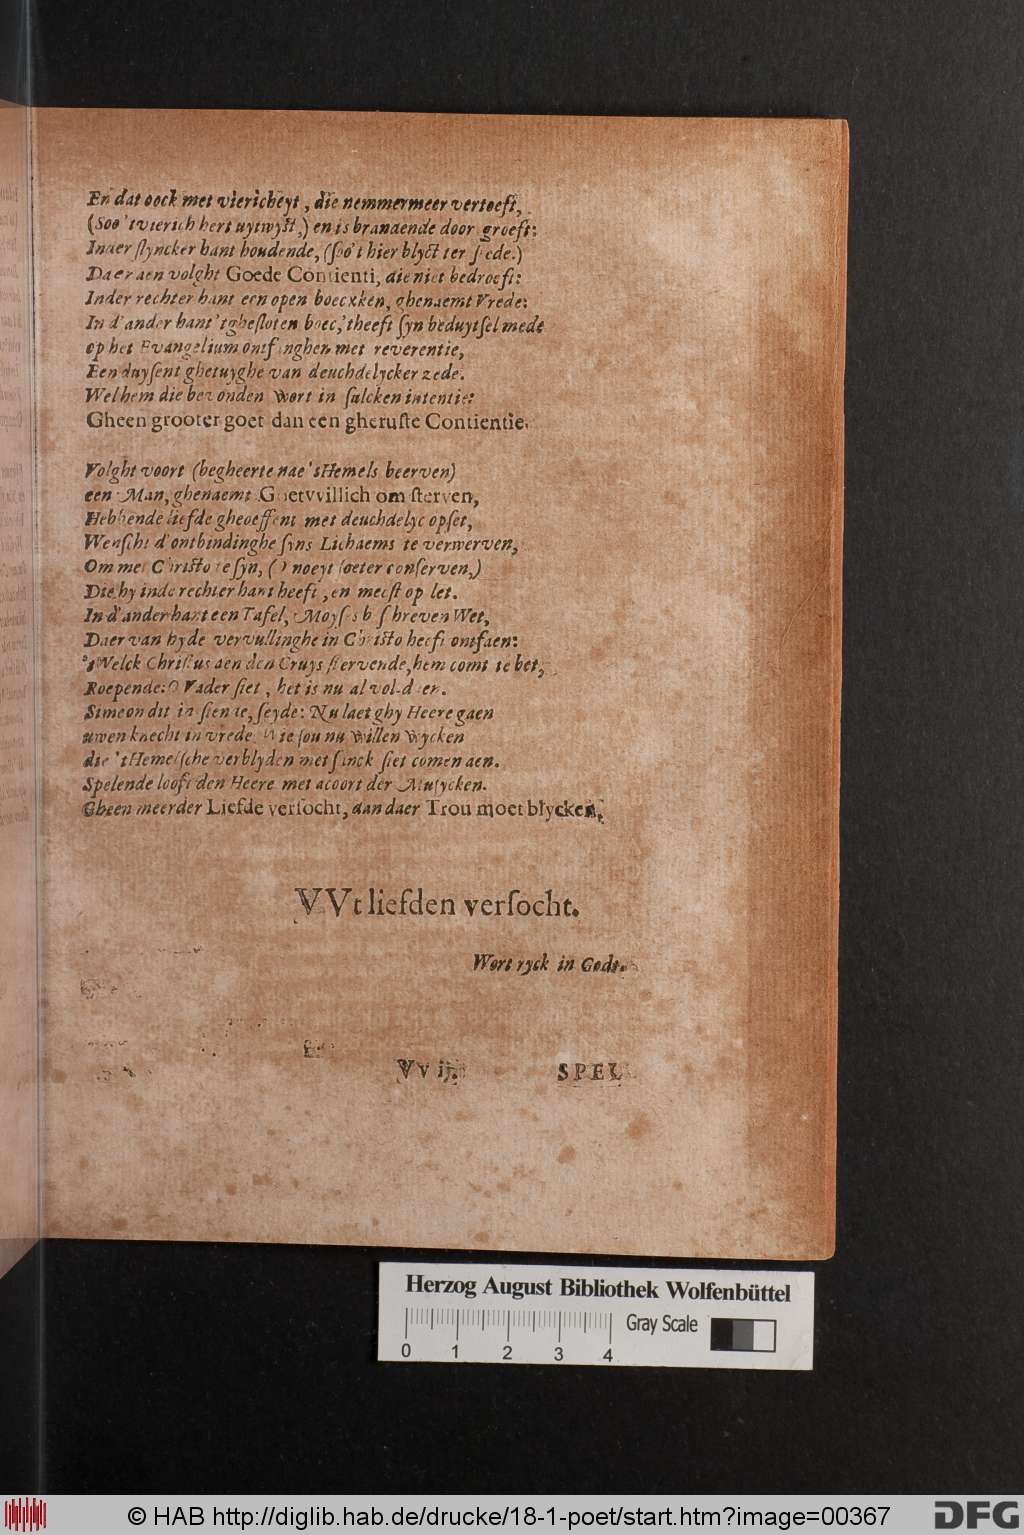 En dat oock met viericheyt, die nemmermeer vertoeft,
(Soo 't vierich hert uytwyst,) en is brandende door groeft:
Inder slyncker hant houdende, (soo 't hier blyct ter stede.)
Daer aen volght Goede Contienti, die niet bedroeft:
Inder rechter hant een open boecxken, ghenaemt Vrede:
In d'ander hant 't ghesloten boec, 't heeft syn beduytsel mede
op het Evangelium ontfinghen met reverentie,
Een duysent ghetuyghe van deuchdelycker zede.
Wel hem die bevonden wort in sulcken intentie:
Gheen grooter goet dan een gheruste Contientie.
Volght voort (begheerte nae 's Hemels beerven)
een Man, ghenaemt Goetvvillich om sterven,
Hebbende liefde gheoeffent met deuchdelyc opset,
Wenscht d'ontbindinghe syns Lichaems te verwerven,
Om met Christo te syn, (O noeyt soeter conserven,)
Die hy inde rechter hant heeft, en meest op let.
In d'ander hant een Tafel, Moyses beschreven Wet,
Daer van hy de vervullinghe in Christo heeft ontfaen:
's Welck Christus aen den Cruys stervende, hem comt te bet,
Roepende: O Vader siet, het is nu al vol-daen.
Simeon dit in siende, seyde: Nu laet ghy Heere gaen
uwen knecht in vrede. Wie sou nu willen wycken
die 't Hemelsche verblyden met sanck siet comen aen.
Spelende looft den Heere met acoort der Musycken.
Gheen meerder Liefde versocht, dan daer Trou moet blycken.
VVt liefden versocht.
Wort ryck in Godt.
Vv ij. SPEL
Herzog August Bibliothek Wolfenbüttel
Gray Scale
0 1 2 3 4
© HAB http://diglib.hab.de/drucke/18-1-poet/start.htm?image=00367
DFG